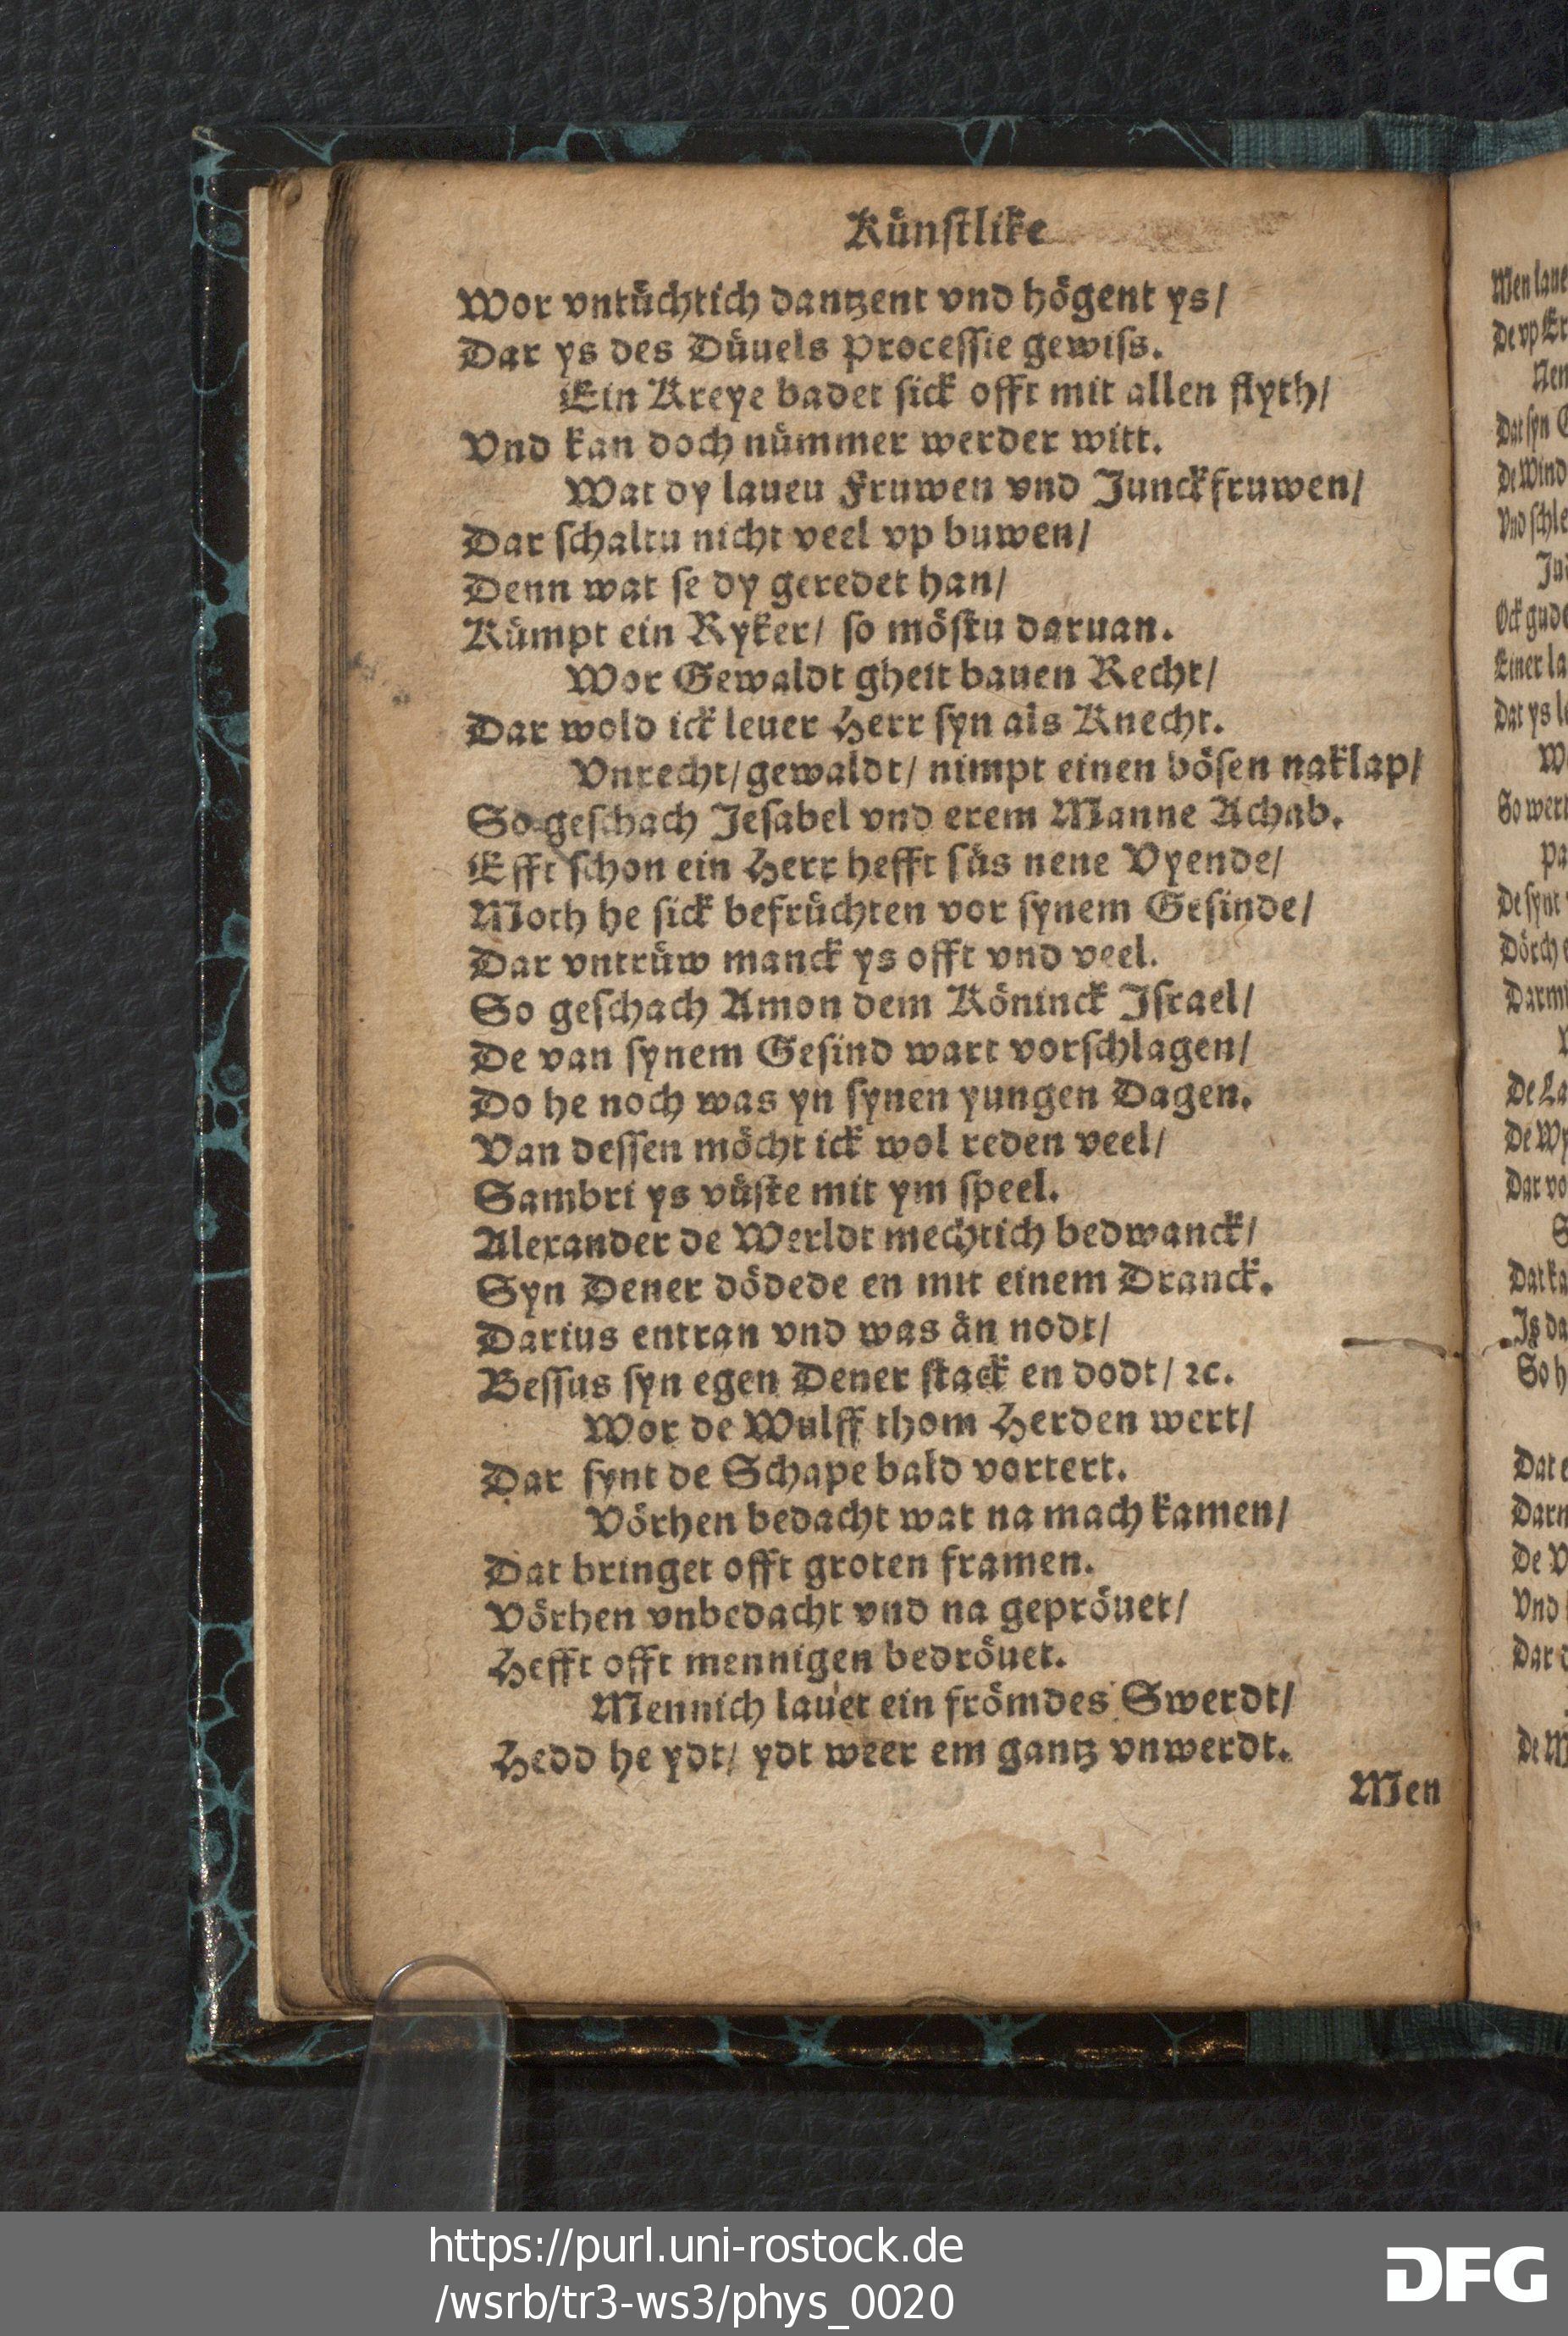 Künstlike
Wor vntüchtich dantzent vnd högent ys/
Dar ys des Düuels Processie gewiss.
Ein Kreye badet sick offt mit allen flyth/
Vnd kan doch nümmer werder witt.
Wat dy laueu Fruwen vnd Junckfruwen/
Dar schaltu nicht veel vp buwen/
Denn wat se dy geredet han/
Kümpt ein Ryker/ so möstu daruan.
Wor Gewaldt gheit bauen Recht/
Dar wold ick leuer Herr syn als Knecht.
Vnrecht/gewaldt/ nimpt einen bösen naklap/
So geschach Jesabel vnd erem Manne Achab.
Efft schon ein Herr hefft süs nene Vyende/
Moth he sick befrüchten vor synem Gesinde/
Dar vntrüw manck ys offt vnd veel.
So geschach Amon dem Köninck Israel/
De van synem Gesind wart vorschlagen/
Do he noch was yn synen yungen Dagen.
Van dessen möcht ick wol reden veel/
Sambri ys vüste mit ym speel.
Alexander de Werldt mechtich bedwanck/
Syn Dener dödede en mit einem Dranck.
Darius entran vnd was än nodt/
Bessus syn egen Dener stack en dodt/ ꝛc.
Wor de Wulff thom Herden wert/
Dar synt de Schape bald vortert.
Vörhen bedacht wat na mach kamen/
Dat bringet offt groten framen.
Vörhen vnbedacht vnd na gepröuet/
Hefft offt mennigen bedröuet.
Mennich lauet ein frömdes Swerdt/
Hedd he ydt/ ydt weer em gantz vnwerdt.
Men
Men laue
De vp Er
Nen
Dat syn G
De Wind
Vnd schle
Ock gude
Einer la
Dat ys l
So wert
De synt
Dörch
Darm
De La
De Wy
Dar vo
Dat ka
So h
Dat
Darn
De V
Vnd
Dar
De M
https://purl.uni-rostock.de
/wsrb/tr3-ws3/phys_0020
DFG